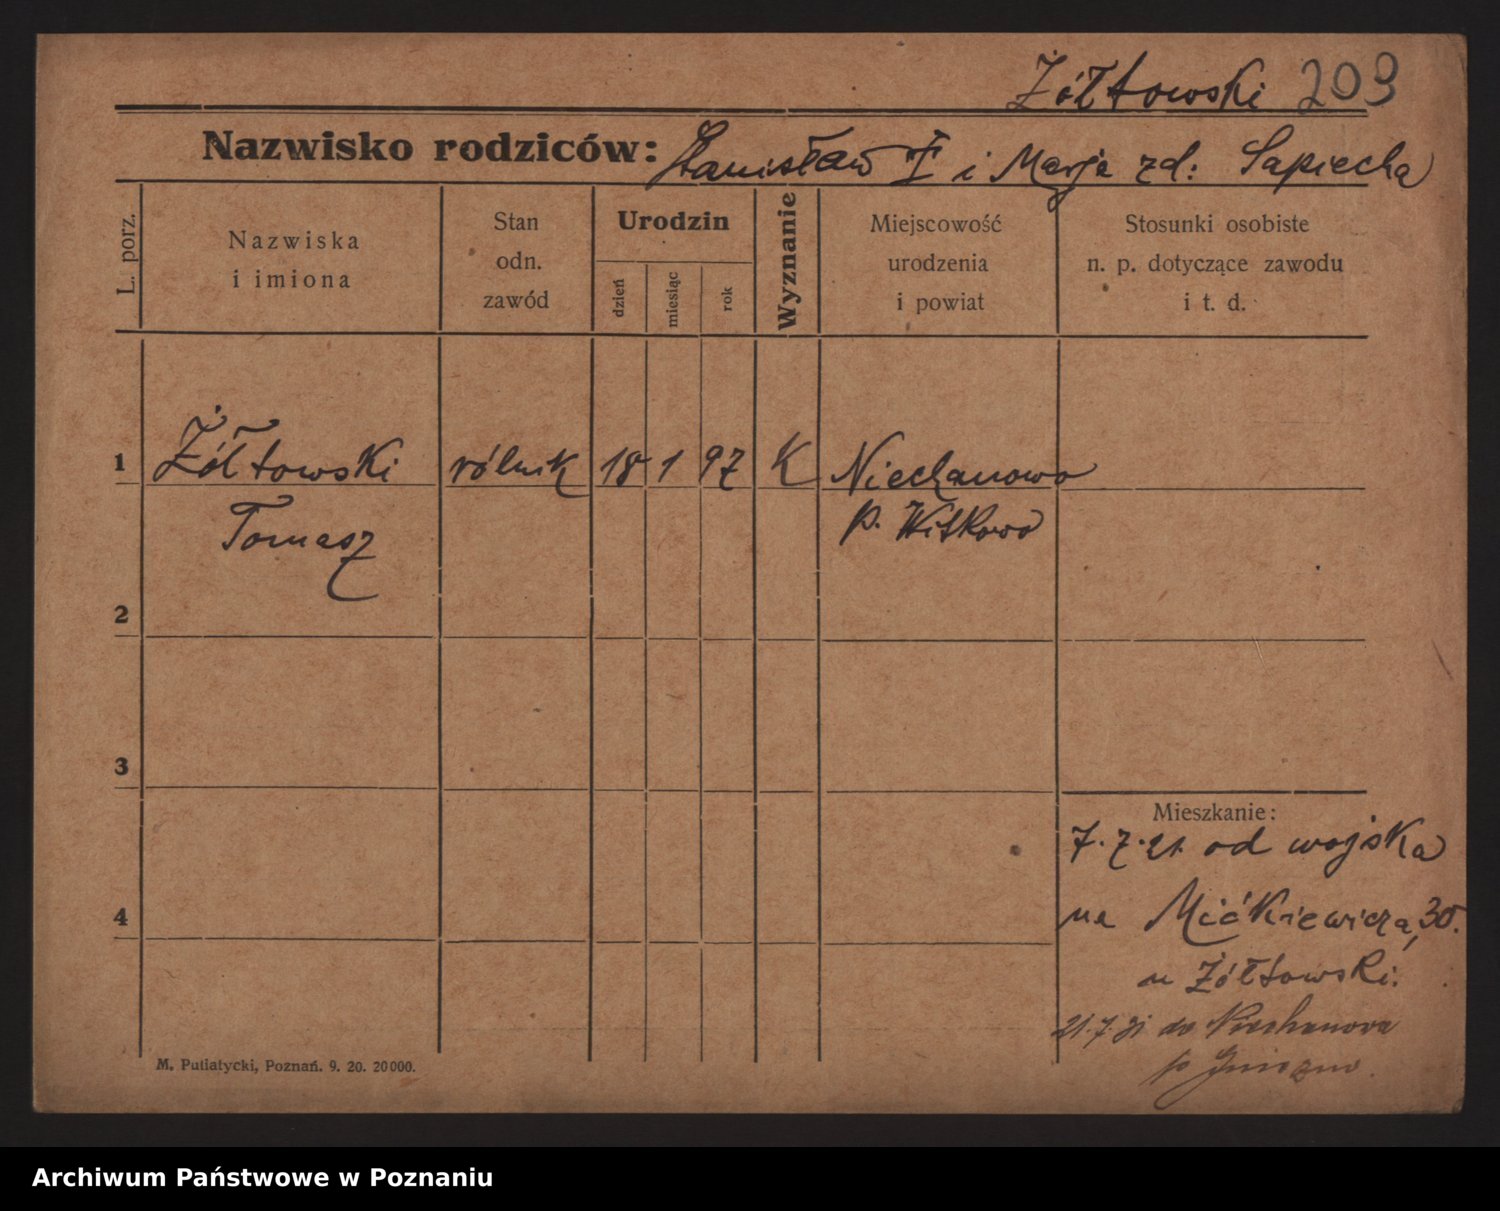 Żółtowski 209
Nazwisko rodziców: Stanisław Ż i Marja zd: Sapiecha
L. porz.
Nazwiska
i imiona
Stan
odn.
zawód
Urodzin
dzień
miesiąc
rok
Wyznanie
Miejscowość
urodzenia
i powiat
Stosunki osobiste
n. p. dotyczące zawodu
i t. d.
1 Żółtowski rólnik 18 1 97 K Niechanowo
Tomasz p. Witkowo
2
3
Mieszkanie:
7.7.21. od wojska
4
na Mićkiewicza, 30.
u Żółtowski.
21.7.21 do Niechanowa
p Gniezno.
M. Putiatycki, Poznań. 9. 20. 20000.
Archiwum Państwowe w Poznaniu